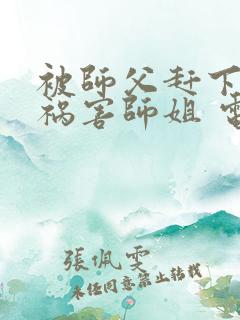 被師父赶下
祸害師姐
張佩雯
未任同意禁止转载